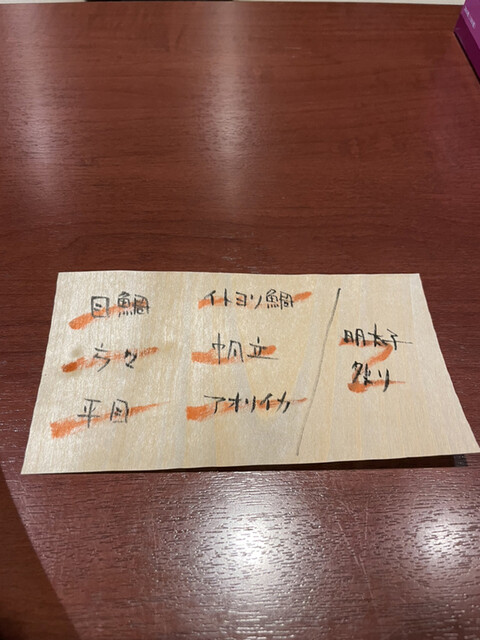 目鯛
方々
平目
イトヨリ鯛
帆立
アオリイカ
明太子
炙り